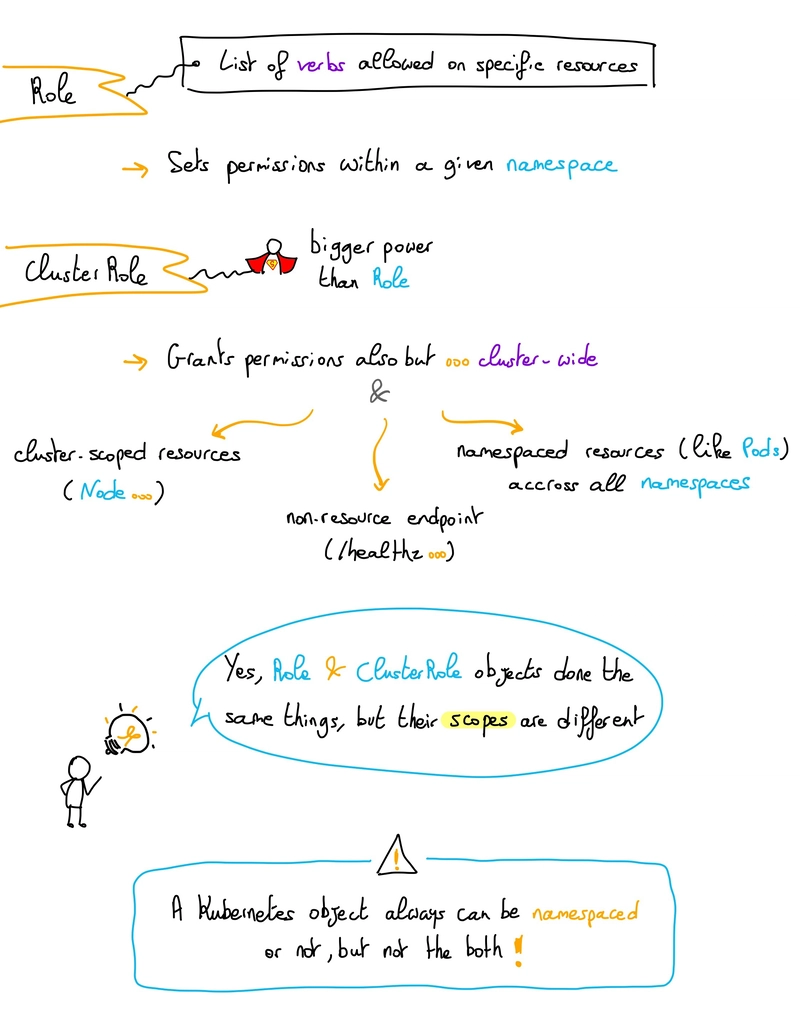 Role
List of verbs allowed on specific resources
→ Sets permissions within a given namespace
ClusterRole
S
bigger power
than Role
→ Grants permissions also but ... cluster-wide
&
cluster-scoped resources
(Node ...)
non-resource endpoint
(/healthz ...)
namespaced resources (like Pods)
accross all namespaces
Yes, Role & ClusterRole objects done the
same things, but their scopes are different
!
A Kubernetes object always can be namespaced
or not, but not the both !